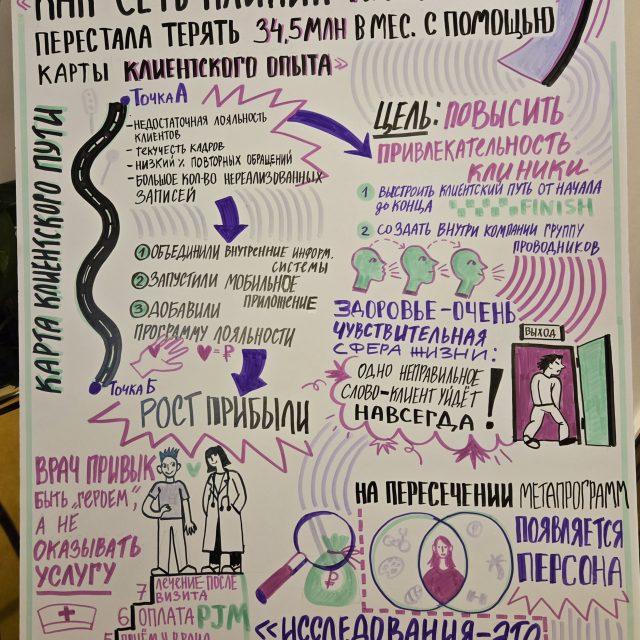 КАК СЕТЬ КЛИНИК
ПЕРЕСТАЛА ТЕРЯТЬ 34,5МЛН В МЕС. С ПОМОЩЬЮ
КАРТЫ КЛИЕНТСКОГО ОПЫТА»
КАРТА КЛИЕНТСКОГО ПУТИ
ТОЧКА А
- НЕДОСТАТОЧНАЯ ЛОЯЛЬНОСТЬ
КЛИЕНТОВ
- ТЕКУЧЕСТЬ КАДРОВ
- НИЗКИЙ % ПОВТОРНЫХ ОБРАЩЕНИЙ
- БОЛЬШОЕ КОЛ-ВО НЕРЕАЛИЗОВАННЫХ
ЗАПИСЕЙ
1 ОБЪЕДИНИЛИ ВНУТРЕННИЕ ИНФОРМ.
СИСТЕМЫ
2 ЗАПУСТИЛИ МОБИЛЬНОЕ
ПРИЛОЖЕНИЕ
3 ДОБАВИЛИ
ПРОГРАММУ ЛОЯЛЬНОСТИ
♥=₽
ТОЧКА Б
РОСТ ПРИБЫЛИ
ЦЕЛЬ: ПОВЫСИТЬ
ПРИВЛЕКАТЕЛЬНОСТЬ
КЛИНИКИ
1 ВЫСТРОИТЬ КЛИЕНТСКИЙ ПУТЬ ОТ НАЧАЛА
ДО КОНЦА FINISH
2 СОЗДАТЬ ВНУТРИ КОМПАНИИ ГРУППУ
ПРОВОДНИКОВ
ЗДОРОВЬЕ-ОЧЕНЬ
ЧУВСТВИТЕЛЬНАЯ
СФЕРА ЖИЗНИ:
ОДНО НЕПРАВИЛЬНОЕ
СЛОВО-КЛИЕНТ УЙДЁТ
НАВСЕГДА!
ВЫХОД
ВРАЧ ПРИВЫК
БЫТЬ „ГЕРОЕМ",
А НЕ
ОКАЗЫВАТЬ
УСЛУГУ
7 ЛЕЧЕНИЕ ПОСЛЕ
ВИЗИТА
6 ОПЛАТА PJM
5 ПРИЁМ У ВРАЧА
НА ПЕРЕСЕЧЕНИИ МЕТАПРОГРАММ
ПОЯВЛЯЕТСЯ
ПЕРСОНА
₽
«ИССЛЕДОВАНИЯ-ЭТО